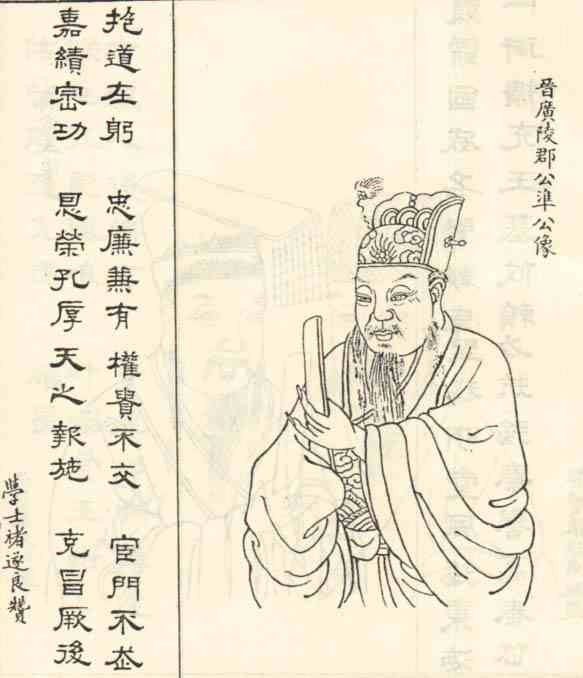 晉廣陵郡公準公像
抱道在躬 忠廉兼有 權貴不交 宦門不
嘉績密功 恩榮孔厚 天之報施 克昌厥後
學士褚遂良贊